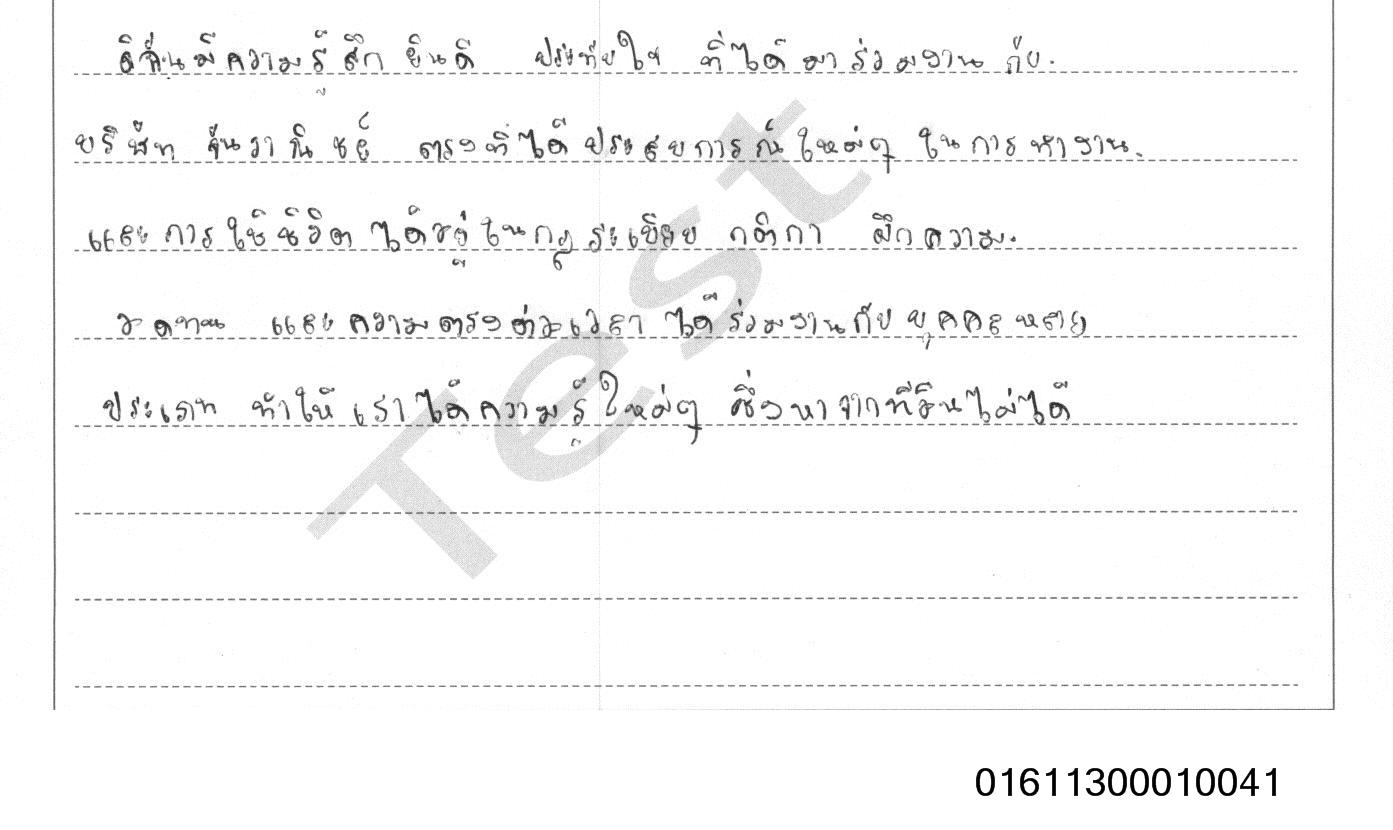 ดิฉันมีความรู้สึกยินดี ประทับใจ ที่ได้มาร่วมงานกับ
บริษัท จันวาณิชย์ ตรงที่ได้ประสบการณ์ใหม่ๆ ในการทำงาน
และการใช้ชีวิต ได้อยู่ในกฎระเบียบ กติกา ฝึกความ
อดทน และความตรงต่อเวลา ได้ร่วมงานกับบุคคลหลาย
ประเภท ทำให้เราได้ความรู้ใหม่ๆ ซึ่งหาจากที่อื่นไม่ได้
Test
01611300010041